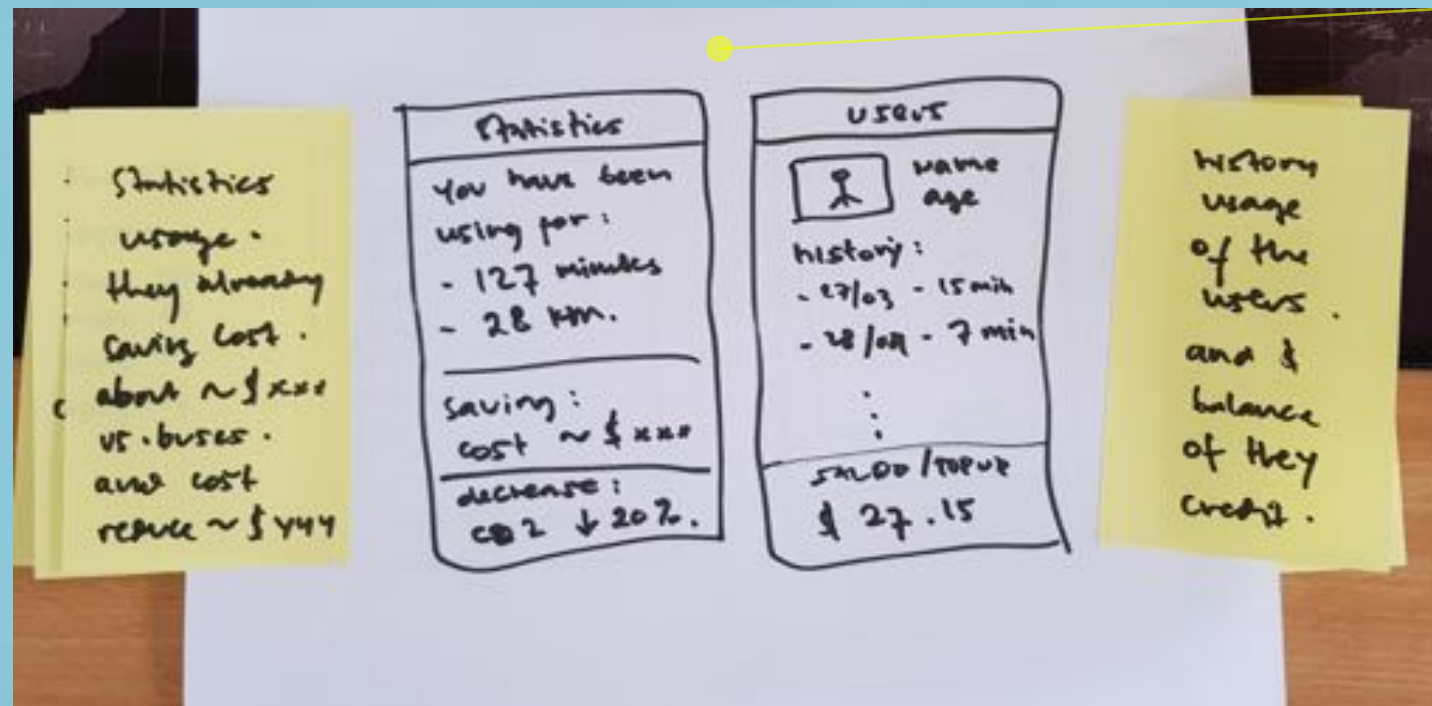 Statistics
usage.
they already
saving cost.
about ~ $ xxx
vs. buses.
and cost
reduce ~ $ yyy
Statistics
you have been
using for:
- 127 minutes
- 28 km.
saving:
cost ~ $ xxx
decrease:
CO2 ↓ 20%.
users
name
age
history:
- 27/03 - 15 min
- 28/03 - 7 min
SALDO / TOPUP
$ 27.15
history
usage
of the
users.
and $
balance
of they
credit.